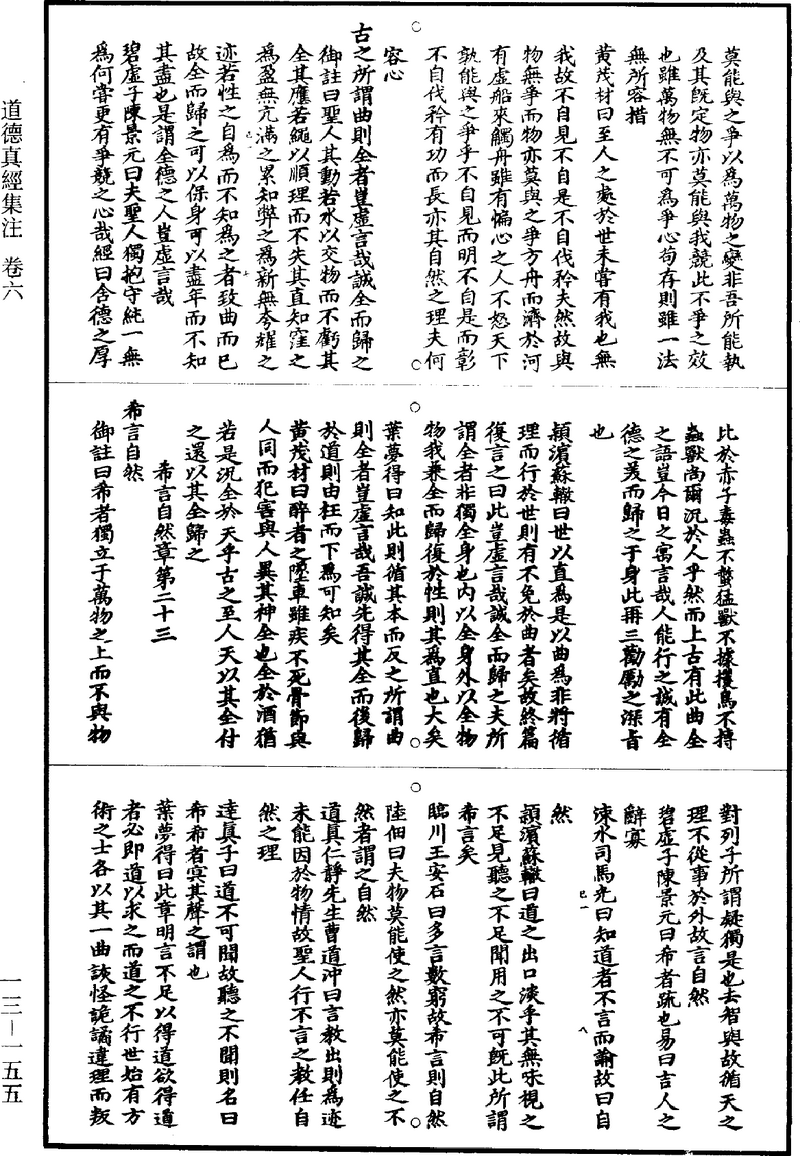 道德真經集注　卷六
一三－一五五
莫能與之爭以爲萬物之變非吾所能執
及其旣定物亦莫能與我競此不爭之效
也雖萬物無不可爲爭心苟存則雖一法
無所容措
黄茂材曰至人之處於世未嘗有我也無
我故不自見不自是不自伐矜夫然故與
物無爭而物亦莫與之爭方舟而濟於河
有虛船來觸舟雖有惼心之人不怒天下
孰能與之爭乎不自見而明不自是而彰
不自伐矜有功而長亦其自然之理夫何
容心
古之所謂曲則全者豈虛言哉誠全而歸之
御註曰聖人其動若水以交物而不虧其
全其應若繩以順理而不失其直知窪之
爲盈無亢滿之累知弊之爲新無夸耀之
迹若性之自爲而不知爲之者致曲而已
故全而歸之可以保身可以盡年而不知
其盡也是謂全德之人豈虛言哉
碧虛子陳景元曰夫聖人獨抱守純一無
爲何嘗更有爭競之心哉經曰含德之厚
比於赤子毒蟲不螫猛獸不據攫鳥不搏
蟲獸尚爾況於人乎然而上古有此曲全
之語豈今日之寓言哉人能行之誠有全
德之美而歸之于身此再三勸勵之深旨
也
潁濱蘇轍曰世以直爲是以曲爲非將循
理而行於世則有不免於曲者矣故終篇
復言之曰此豈虛言哉誠全而歸之夫所
謂全者非獨全身也内以全身外以全物
物我兼全而歸復於性則其爲直也大矣
葉夢得曰知此則循其本而反之所謂曲
則全者豈虛言哉吾誠先得其全而後歸
於道則由枉而下爲可知矣
黄茂材曰醉者之墜車雖疾不死骨節與
人同而犯害與人異其神全也全於酒猶
若是況全於天乎古之至人天以其全付
之還以其全歸之
希言自然章第二十三
希言自然
御註曰希者獨立于萬物之上而不與物
對列子所謂凝獨是也去智與故循天之
理不從事於外故言自然
碧虛子陳景元曰希者疏也易曰吉人之
辭寡
涑水司馬光曰知道者不言而諭故曰自
然
潁濱蘇轍曰道之出口淡乎其無味視之
不足見聽之不足聞用之不可旣此所謂
希言矣
臨川王安石曰多言數窮故希言則自然
陸佃曰夫物莫能使之然亦莫能使之不
然者謂之自然
道真仁靜先生曹道沖曰言教出則爲迹
未能因於物情故聖人行不言之教任自
然之理
達真子曰道不可聞故聽之不聞則名曰
希希者寔其聲之謂也
葉夢得曰此章明言不足以得道欲得道
者必卽道以求之而道之不行世始有方
術之士各以其一曲談怪詭譎違理而叛